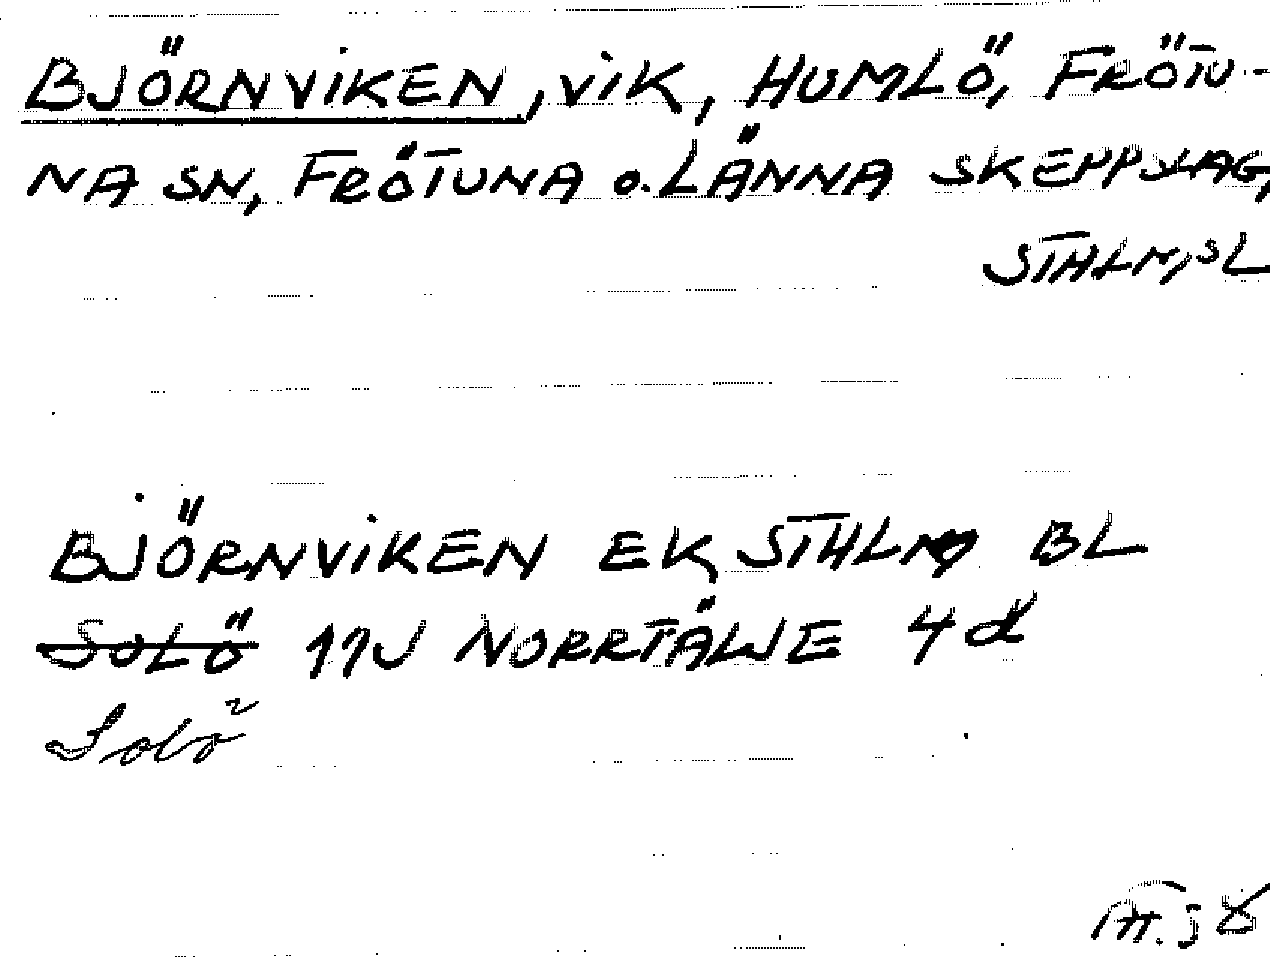 BJÖRNVIKEN, VIK, HUMLÖ, FRÖTU-
NA SN, FRÖTUNA o. LÄNNA SKEPPSLAG,
STHLM, SL
BJÖRNVIKEN EK STHLM BL
SOLÖ 11J NORRTÄLJE 4d
Solö